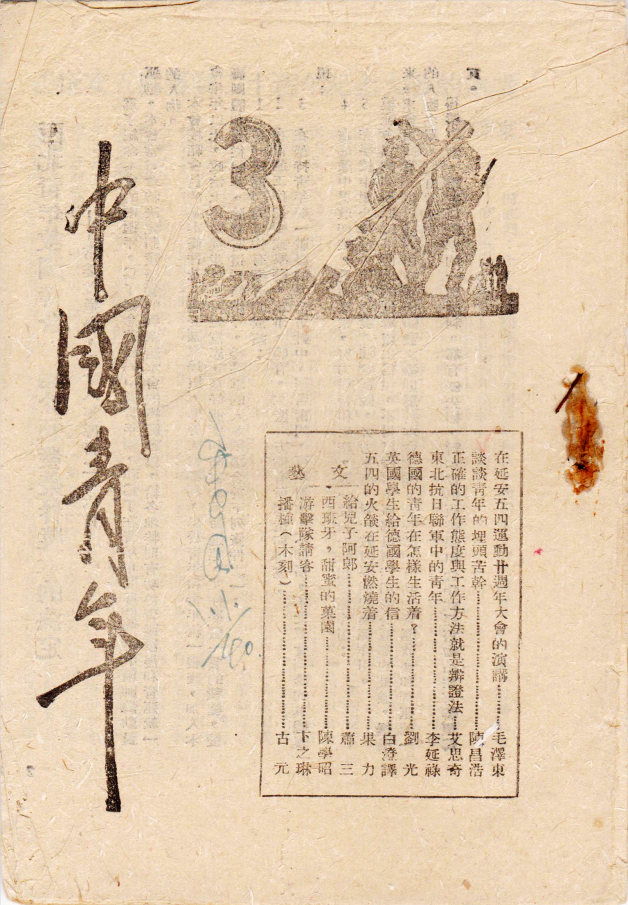 中國青年
3
在延安五四運動廿週年大會的演講……毛澤東
談談青年的埋頭苦幹……陳昌浩
正確的工作態度與工作方法就是辯證法……艾思奇
東北抗日聯軍中的青年……李延祿
德國的青年在怎樣生活着？……劉光
英國學生給德國學生的信……白澄譯
五四的火燄在延安燃燒着……果力
文藝
給兒子阿郎……蕭三
西班牙，甜蜜的菓園……陳學昭
游擊隊請客……卞之琳
播種（木刻）……古元